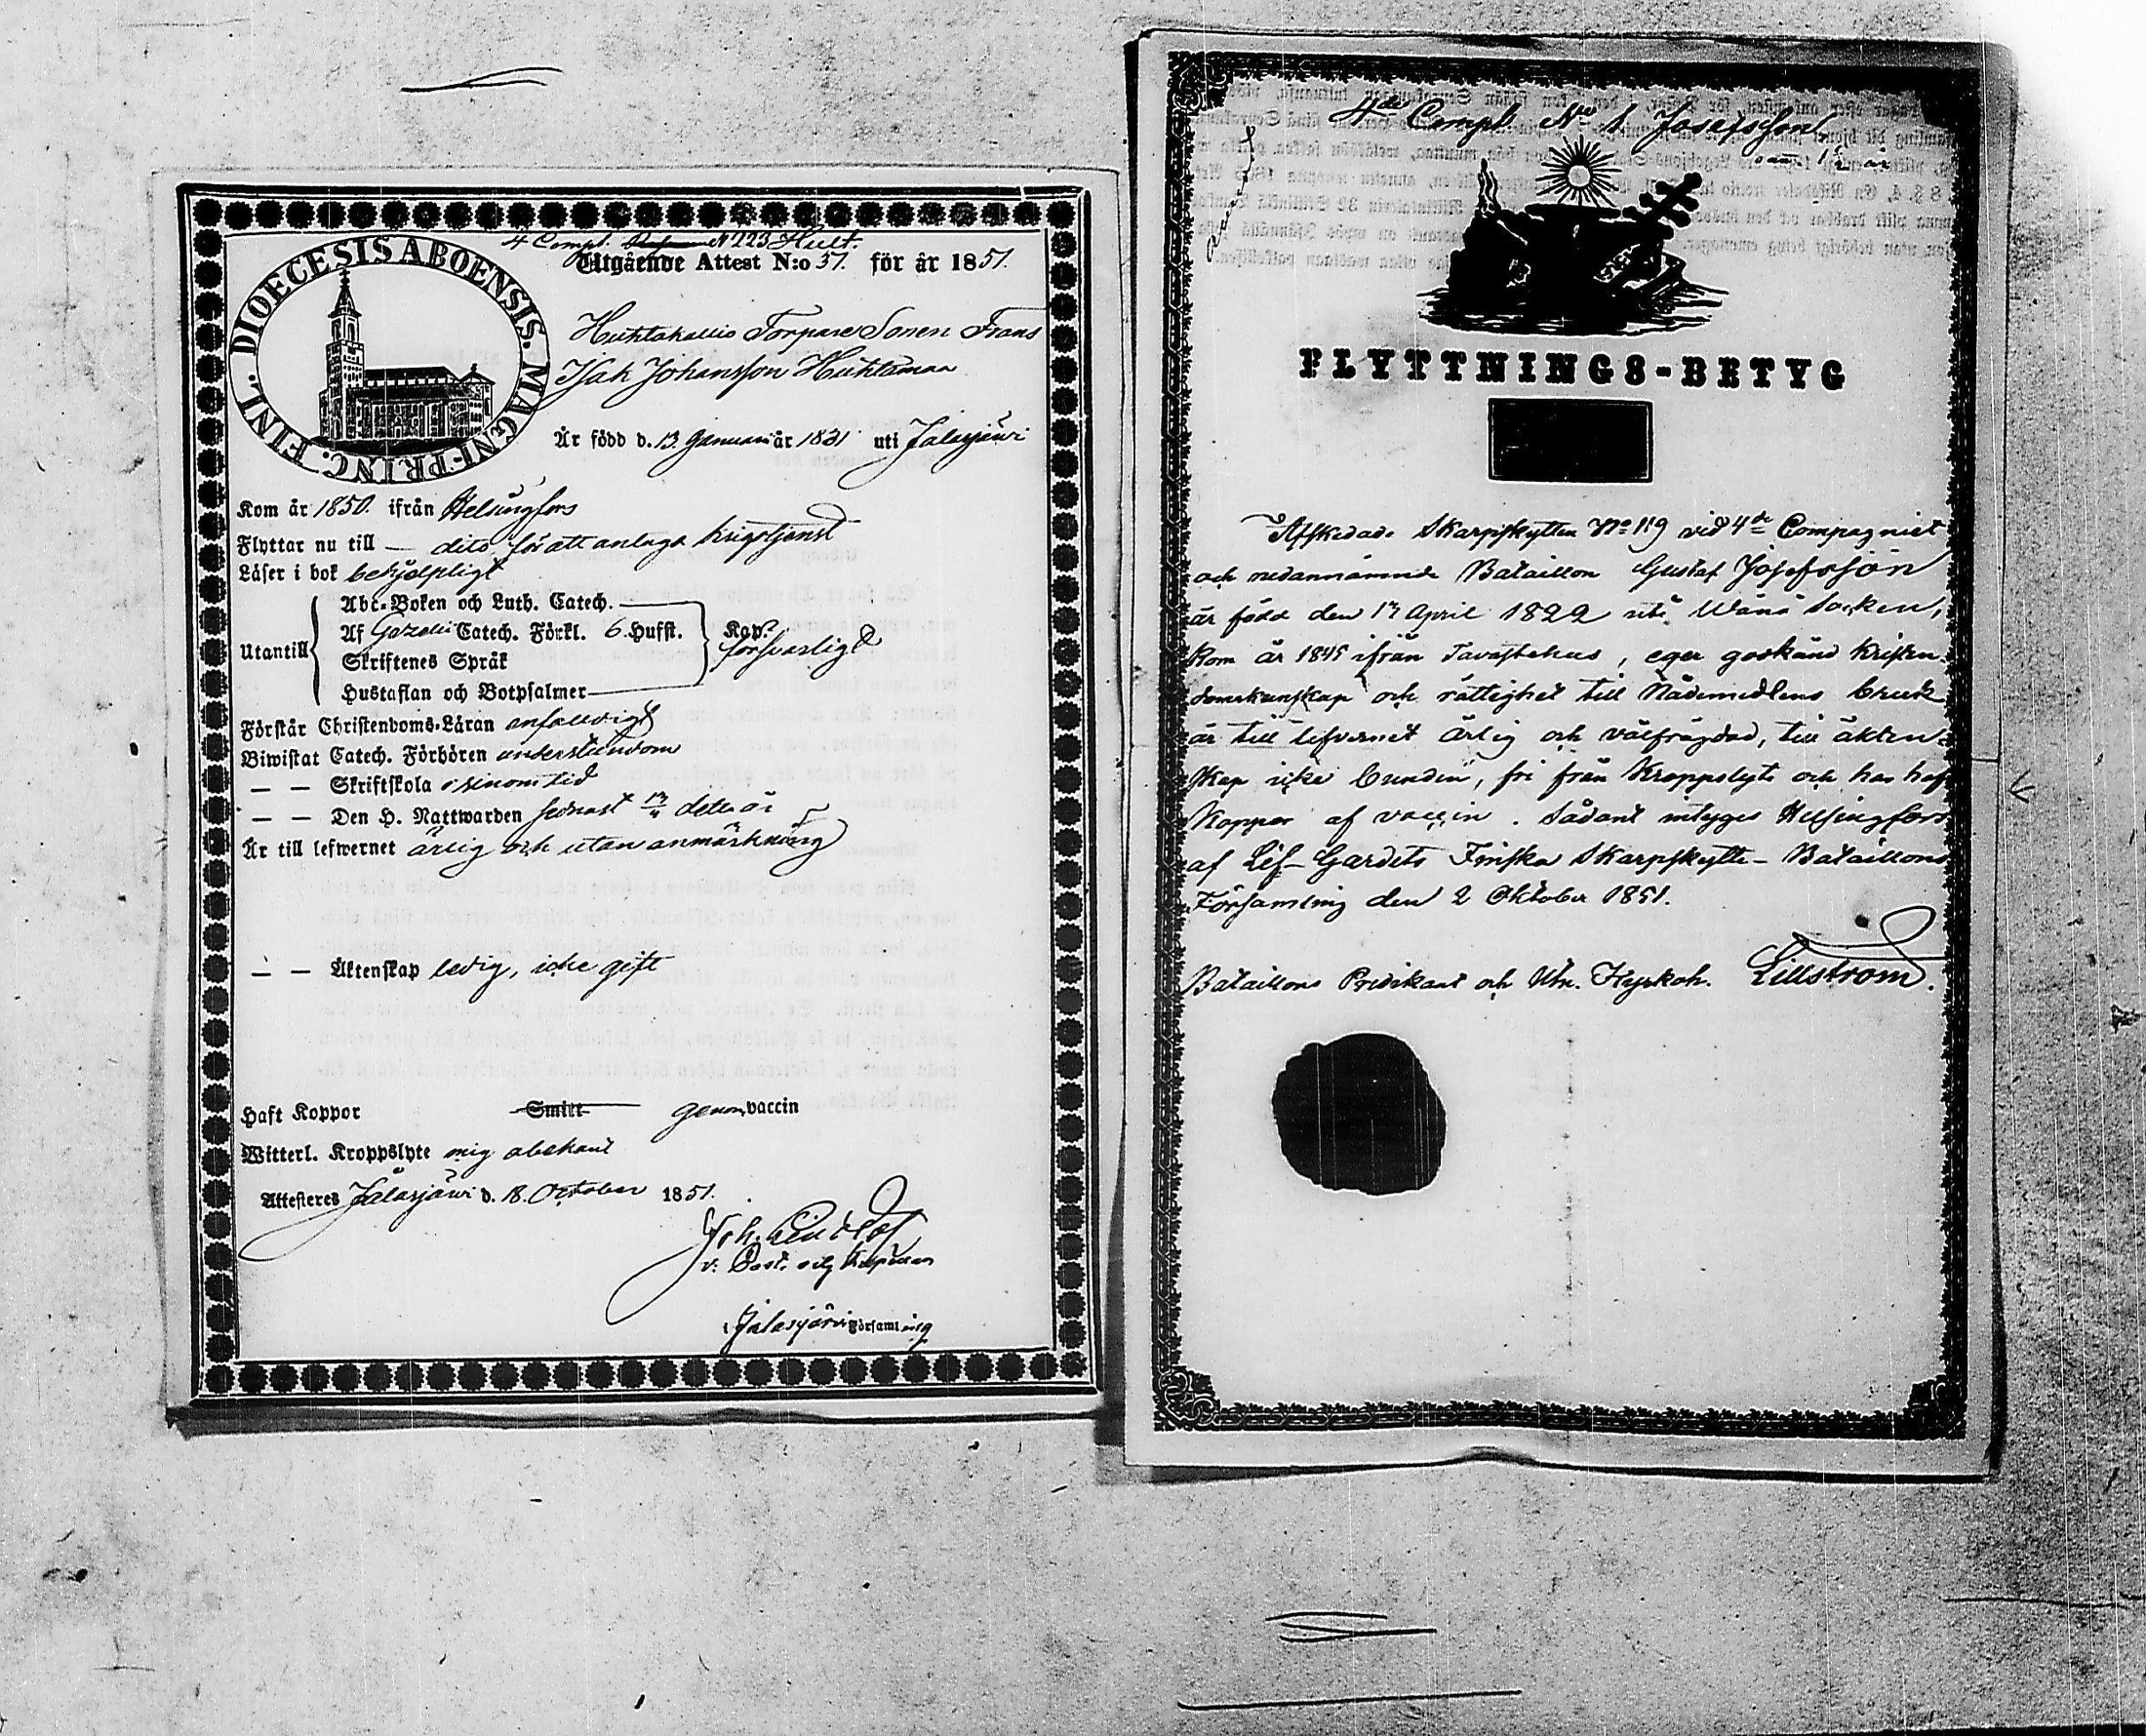 4 Compl. N 223 Hult.
Utgående Attest N:o 57. för år 1851.
DIOECESIS ABOENSIS. MAGNI-PRINC. FINL.
Huhtakallio Torpare Sonen Frans
Isak Johansson Huhtamaa
Är född d. 13 Januari år 1831 uti Jalasjärvi
Kom år 1850. ifrån Helsingfors
Flyttar nu till — dito för att antaga krigstjenst
Läser i bok behjelpligt
Abc-Boken och Luth. Catech.
Utantill Af Gezelii Catech. Förkl. 6 Hufst. Kap.
Skriftenes Språk försvarligt
Hustaflan och Botpsalmer
Förstår Christendoms-Läran enfalldigt
Biwistat Catech. Förhören understundom
— — Skriftskola i sinom tid
— — Den H. Nattwarden sednast detta år
Är till lefwernet ärlig och utan anmärkning
— — Äktenskap ledig, icke gift
Haft Koppor Smitt genom vaccin
Witterl. Kroppslyte mig obekant
Attesteres Jalasjärvi d. 18. October 1851.
Joh.
v. Past.
i Jalasjärvi Församling
4de Compl. No 1 Josefsson
1 1/2 år
FLYTTNINGS-BETYG
Afskedade Skarpskytten No 119 vid 4de Compagniet
och nedannämnde Bataillon Gustaf Josefsson
är född den 17 April 1822 uti Wånå Socken,
kom år 1845 ifrån Tavastehus, eger godkänd Kristen-
domskunskap och rättighet till Nådemedlens bruk
är till lefvernet ärlig och välfrägdad, till äkten-
skap icke bunden, fri från Kroppslyte och har haft
Koppor af vaccin. Sådant intyges Helsingfors
af Lif-Gardets Finska Skarpskytte-Bataillons
Församling den 2 Oktober 1851.
Bataillons Predikant och Utn. Kyrkoh. Lillström.